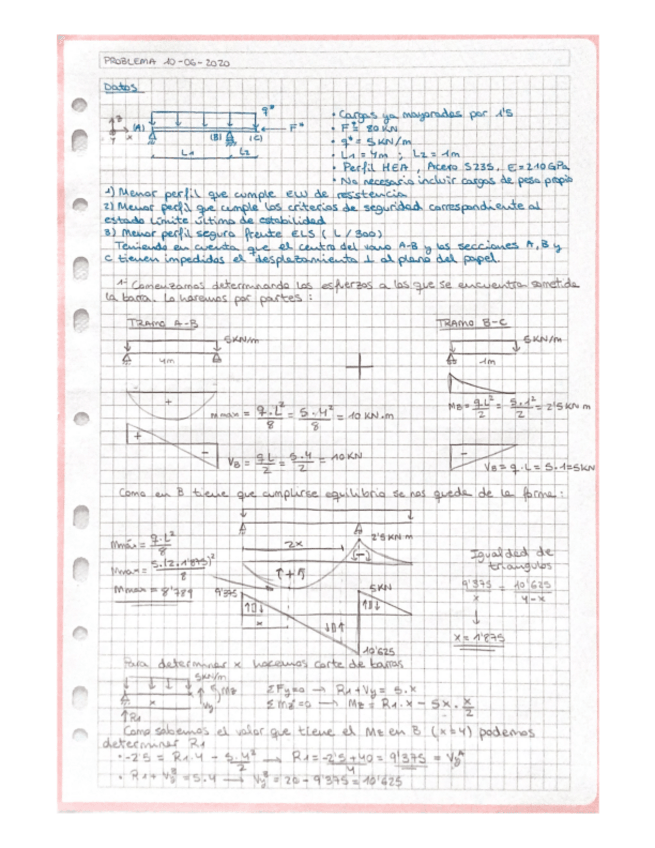 PROBLEMA 10-06-2020
Datos
q*
F*
(A)
(B)
(C)
z
x
y
L1
L2
• Cargas ya mayoradas por 1'5
• F* = 80 KN
• q* = 5 KN/m
• L1 = 4m ; L2 = 1m
• Perfil HEA, Acero S235, E=210GPa
• No necesario incluir cargas de peso propio
1) Menor perfil que cumple ELU de resistencia
2) Menor perfil que cumple los criterios de seguridad correspondiente al
estado límite último de estabilidad
3) Menor perfil seguro frente ELS (L/300)
Teniendo en cuenta que el centro del vano A-B y las secciones A, B y
C tienen impedidos el desplazamiento ⊥ al plano del papel.
1- Comenzamos determinando los esfuerzos a los que se encuentra sometida
la barra. Lo haremos por partes:
TRAMO A-B
TRAMO B-C
5KN/m
5KN/m
4m
1m
+
+
Mmax = q·L²/8 = 5·4²/8 = 10 KN·m
MB = q·L²/2 = 5·1²/2 = 2'5 KN m
+
-
VB = qL/2 = 5·4/2 = 10KN
-
VB = q·L = 5·1=5KN
Como en B tiene que cumplirse equilibrio se nos queda de la forma:
2x
2'5 KN m
(-)
Mmáx = q·L²/8
Mmax = 5·(2·1'875)²/8
Mmax = 8'789
Igualdad de
triangulos
9'375/x = 10'625/4-x
x = 1'875
9'375
5KN
x
10'625
Para determinar x hacemos corte de barras
5KN/m
x
R1
ΣFy=0 → R1+Vy = 5·x
Σmz=0 → Mz = R1·x - 5x·x/2
Como sabemos el valor que tiene el Mz en B (x=4) podemos
determinar R1
• -2'5 = R1·4 - 5·4²/2 → R1 = -2'5+40/4 = 9'375 = VyA
• R1 + VyB = 5·4 → VyB = 20 - 9'375 = 10'625